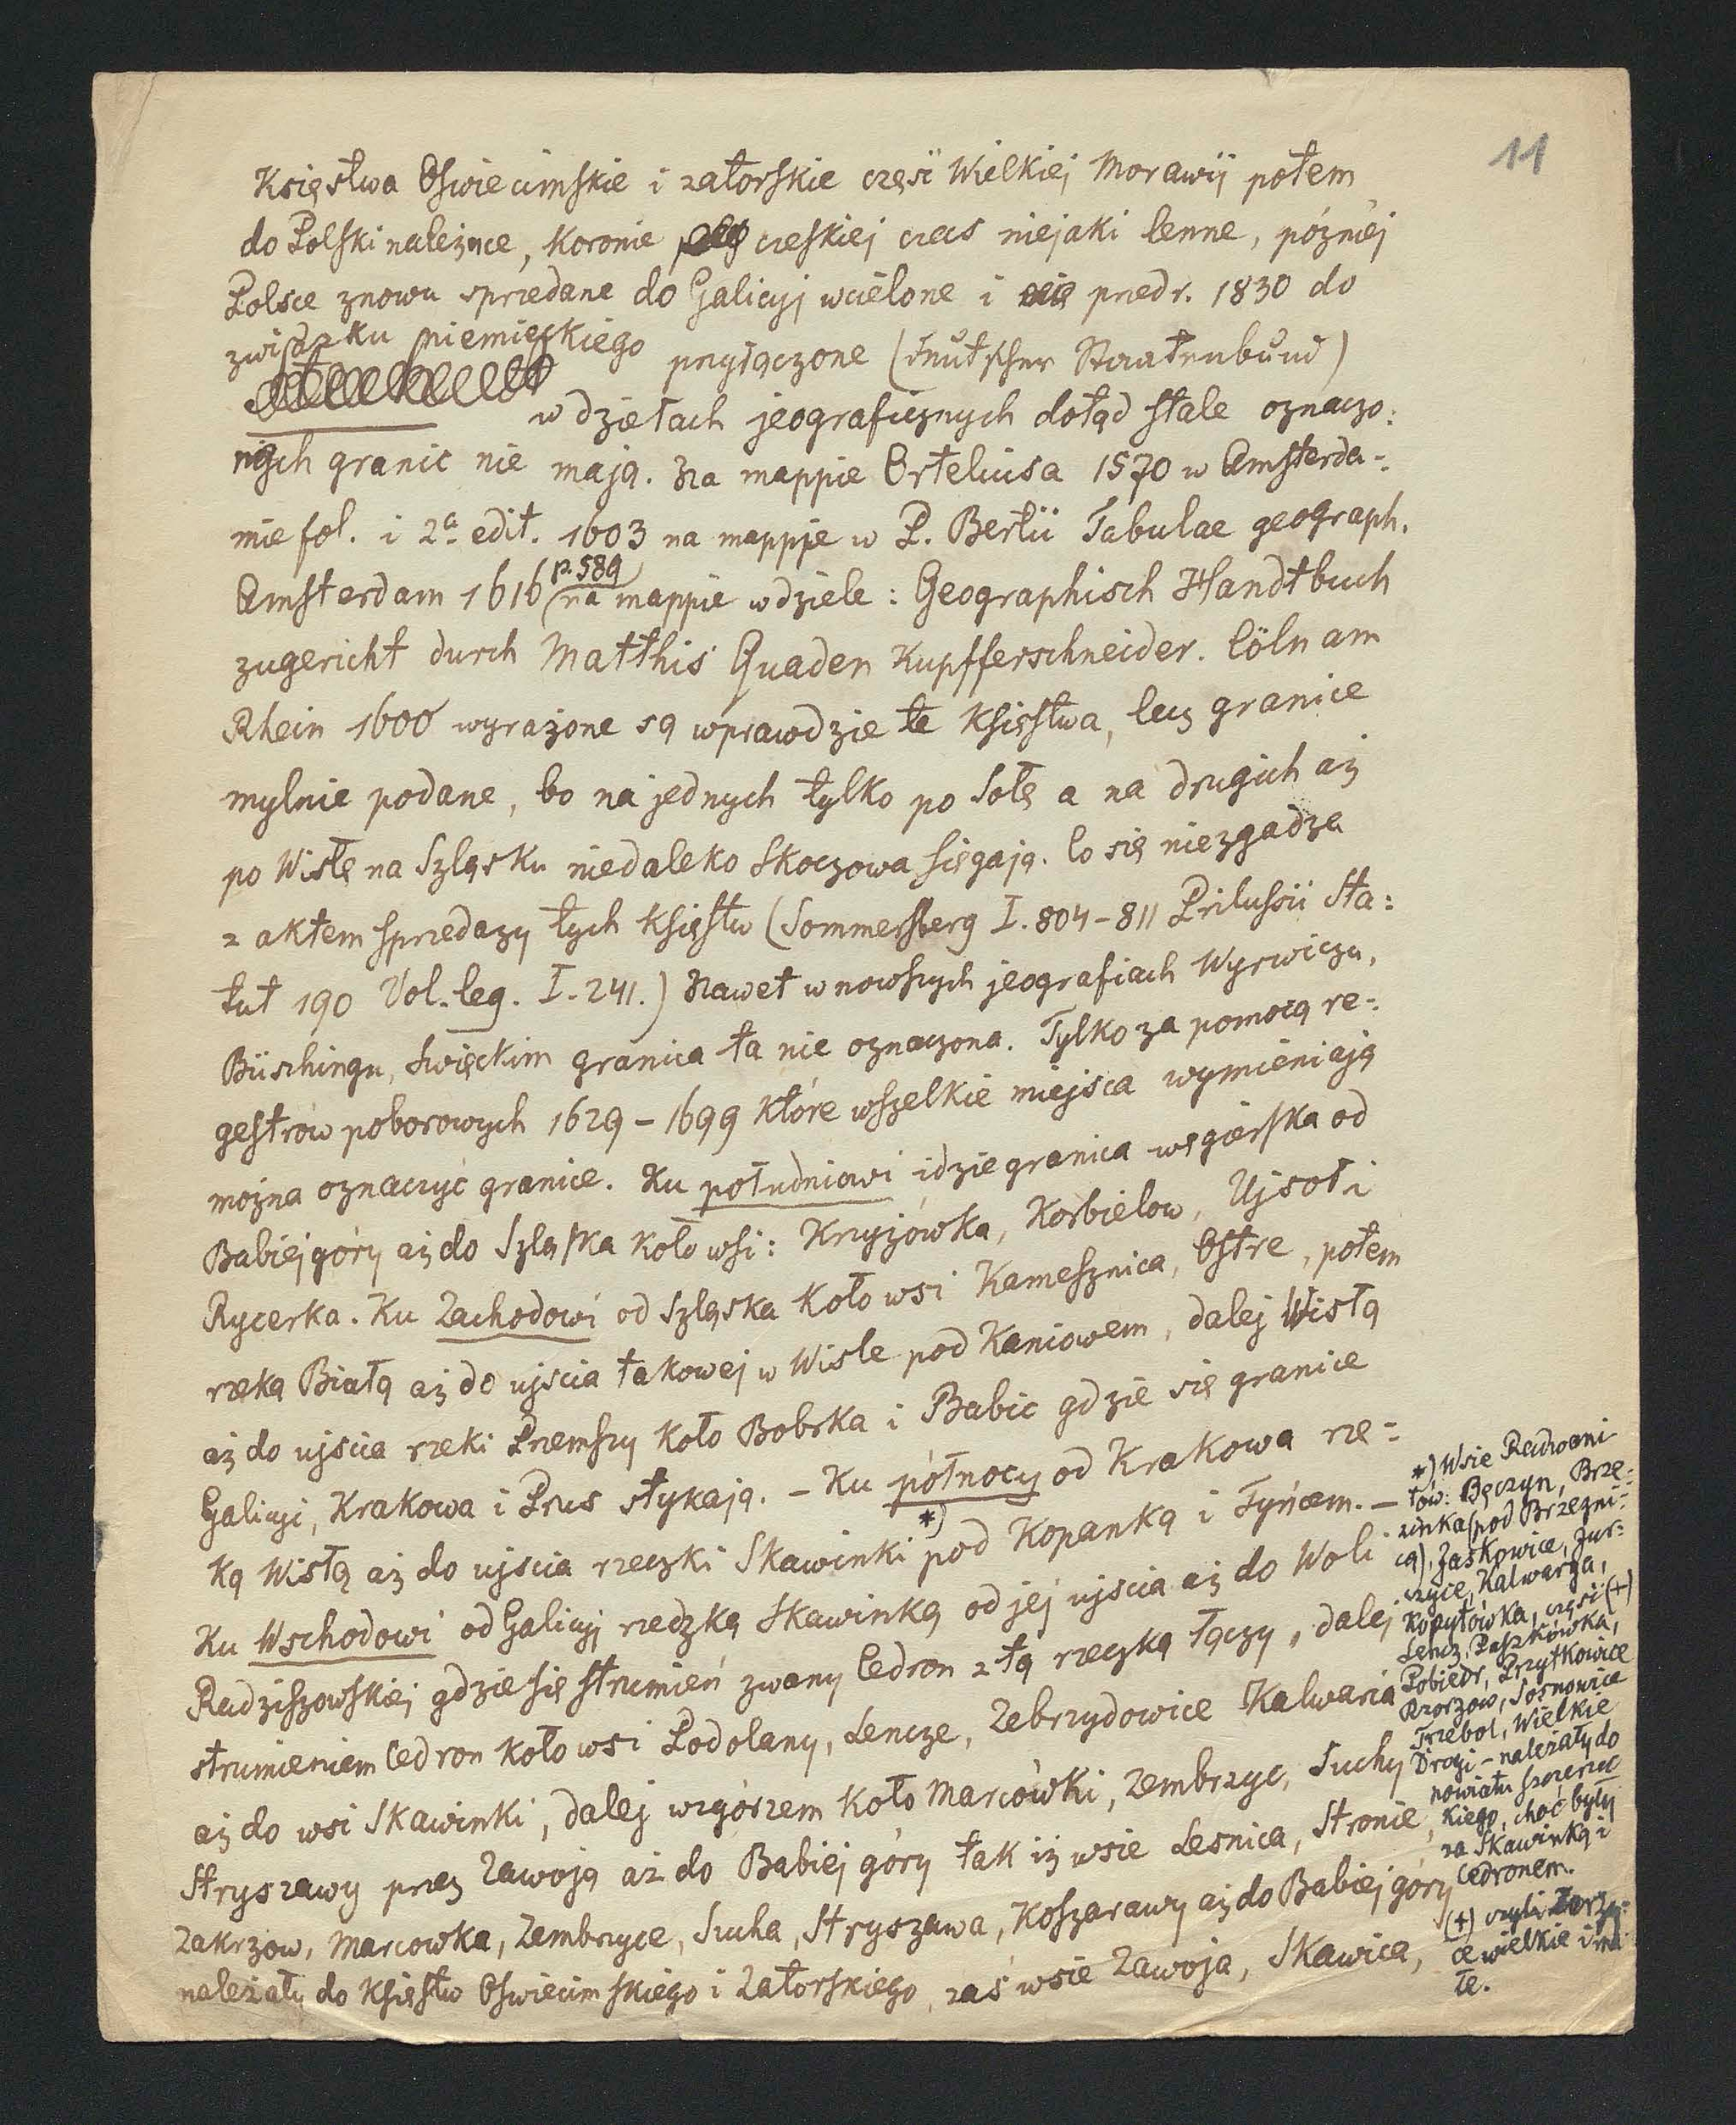 11
Księstwa Oświecimskie i zatorskie część Wielkiej Morawij potem
do Polski należące, Koronie czeskiej czas niejaki lenne, później
Polsce znowu sprzedane do Galicyj wcielone i przed r. 1830 do
związku niemieckiego przyłączone (deutscher Staatenbund)
w dziełach jeograficznych dotąd stale oznaczo:
nych granic nie mają. Na mappie Orteliusa 1570 w Amsterda-:
mie fol. i 2a edit. 1603 na mappie w P. Bertii Tabulae geograph.
Amsterdam 1616 p. 589 na mappie w dziele: Geographisch Handtbuch
zugericht durch Matthis Quaden Kupfferschneider. Cöln am
Rhein 1600 wyrażone są wprawdzie te Księstwa, lecz granice
mylnie podane, bo na jednych tylko po Sołę a na drugich aż
po Wisłę na Szląsku niedaleko Skoczowa sięgają. Co się niezgadza
z aktem sprzedazy tych Księstw (Sommersberg I. 804-811 Prilussii Sta:
tut 190 Vol. leg. I. 241.) Nawet w nowszych jeografiach Wyrwicza,
Büschingu, Swięckim granica ta nie oznaczona. Tylko za pomocą re-:
gestrów poborowych 1629-1699 które wszelkie miejsca wymieniają
można oznaczyć granice. Ku południowi idzie granica węgierska od
Babiej góry aż do Szląska koło wsi: Krzyżówka, Korbielow, Ujsoł i
Rycerka. Ku Zachodowi od Szląska koło wsi Kamesznica, Ostre, potem
rzeką Białą aż do ujscia takowej w Wisle pod Kaniowem, dalej Wisłą
aż do ujscia rzeki Przemszy koło Bobrka i Babic gdzie się granice
Galicyi, Krakowa i Prus stykają. - Ku północy od Krakowa rze-:
ką Wisłą aż do ujscia rzeczki Skawinki *) pod Kopanką i Tyńcem. -
Ku Wschodowi od Galicyj rzeczką Skawinką od jej ujscia aż do Woli
Radziszowskiej gdzie się strumień zwany Cedron z tą rzeczką łączy, dalej
strumieniem Cedron koło wsi Podolany, Lencze, Zebrzydowice Kalwaria
aż do wsi Skawinki, dalej wzgórzem koło Marcówki, Zembrzyc, Suchy
Stryszawy przez Zawoją aż do Babiej góry tak iż wsie Lesnica, Stronie,
Zakrzow, Marcowka, Zembrzyce, Sucha, Stryszawa, Koszarawy aż do Babiej góry
należały do Księstw Oświecimskiego i Zatorskiego, zaś wsie Zawoja, Skawica,
*) Wsie Radwani
tów: Bęczyn, Brze-:
zinka (pod Brzezni-:
cą), Jaśkowice, Jur-:
czyce, Kalwarya,
Kopytówka, część (+)
Lencz, Paszkówka,
Pobiedr, Przytkowice
Rzorzow, Sosnowice
Trzebol, Wielkie
Drogi - należały do
powiatu szczerzec
kiego, choć były
za Skawinką i
Cedronem.
(+) czyli
ce wielkie i ma
łe.